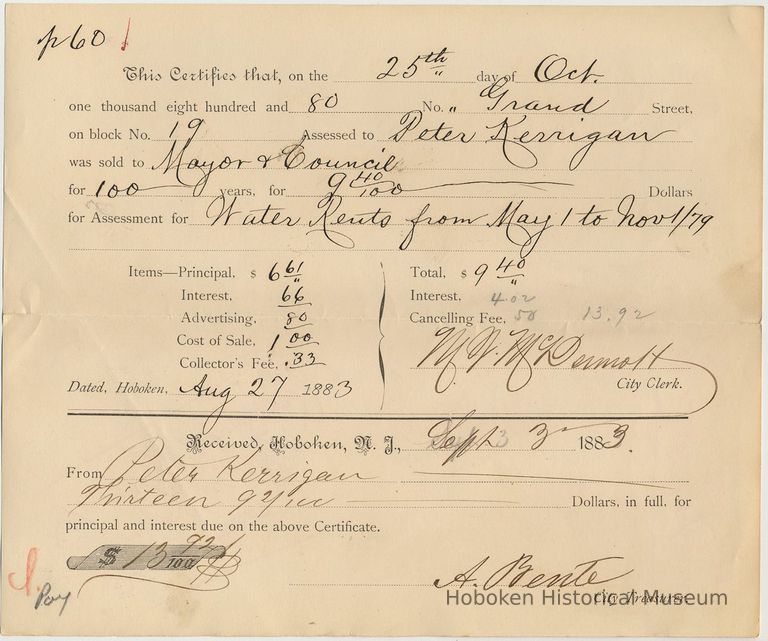 p60
This Certifies that, on the 25th day of Oct.
one thousand eight hundred and 80 No. " Grand Street,
on block No. 19 Assessed to Peter Kerrigan
was sold to Mayor & Council
for 100 years, for 9 40/100 Dollars
for Assessment for Water Rents from May 1 to Nov 1/79
Items—Principal, $ 6 61 Total, $ 9 40
Interest, 66 Interest, 4.02
Advertising, 80 Cancelling Fee, 50 13.92
Cost of Sale, 1 00
Collector's Fee, .33 M. V. McDermott
Dated, Hoboken, Aug 27 1883 City Clerk.
Received, Hoboken, N. J., Sept 3 1883.
From Peter Kerrigan
Thirteen 92/100 Dollars, in full, for
principal and interest due on the above Certificate.
$ 13 92/100
A. Bente
City Treasurer.
Pay
Hoboken Historical Museum